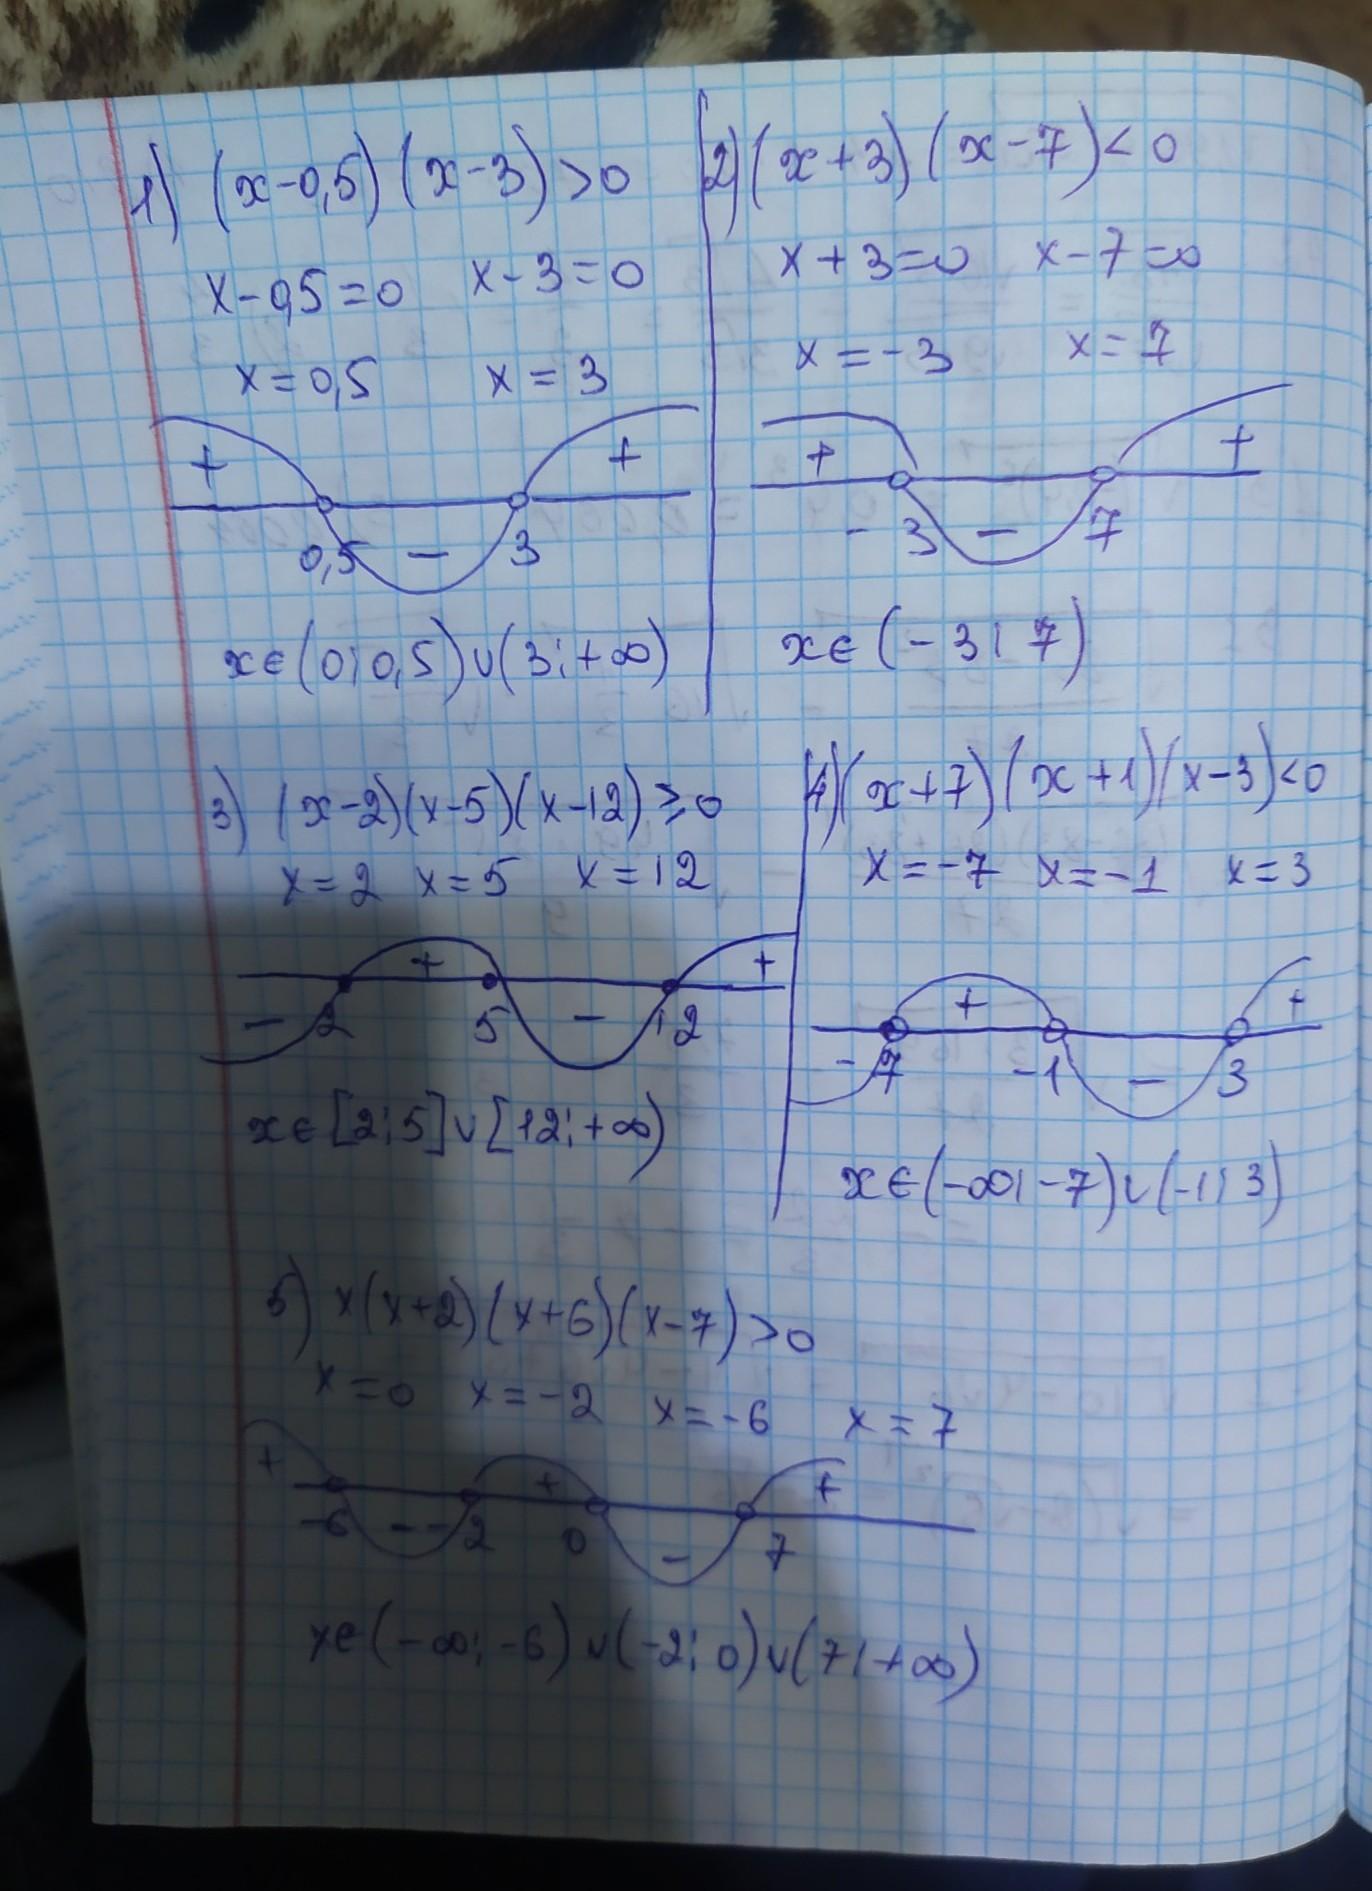 1) (x-0,5)(x-3)>0
x-0,5=0 x-3=0
x=0,5 x=3
+ - +
0,5 3
x∈(0;0,5)∪(3;+∞)
2) (x+3)(x-7)<0
x+3=0 x-7=0
x=-3 x=7
+ - +
-3 7
x∈(-3;7)
3) (x-2)(x-5)(x-12)≥0
x=2 x=5 x=12
- + - +
2 5 12
x∈[2;5]∪[12;+∞)
4) (x+7)(x+1)(x-3)<0
x=-7 x=-1 x=3
+ - +
-7 -1 3
x∈(-∞;-7)∪(-1;3)
5) x(x+2)(x+6)(x-7)>0
x=0 x=-2 x=-6 x=7
+ - + - +
-6 -2 0 7
x∈(-∞;-6)∪(-2;0)∪(7;+∞)